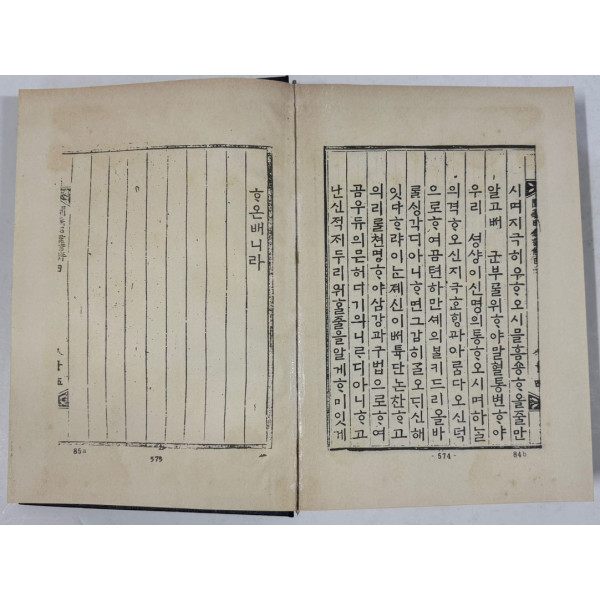 시며지극히우ᄒᆞ오시믈흠숑ᄒᆞ올줄만
알고뻐 군부ᄅᆞᆯ위ᄒᆞ야말혈통변ᄒᆞ야
우리 셩샹이신명의통ᄒᆞ오시며하ᄂᆞᆯ
의격ᄒᆞ오신지극ᄒᆞᆫ힝과아ᄅᆞᆷ다오신덕
으로ᄒᆞ여곰텬하만셰의ᄇᆞᆯ키드리올바
ᄅᆞᆯ싱각디아니ᄒᆞ면그감히ᄀᆞᆯ오ᄃᆡ신해
잇다ᄒᆞ랴이ᄂᆞᆫ졔신이뻐륙단논찬ᄒᆞ고
의리ᄅᆞᆯ쳔명ᄒᆞ야삼강과구법으로ᄒᆞ여
곰우듀의믄허디기의니ᄅᆞ디아니ᄒᆞ고
난신적저두리위ᄒᆞᆯ줄을알게ᄒᆞ미잇게
- 574 -
84b
ᄒᆞ온배니라
85a
575